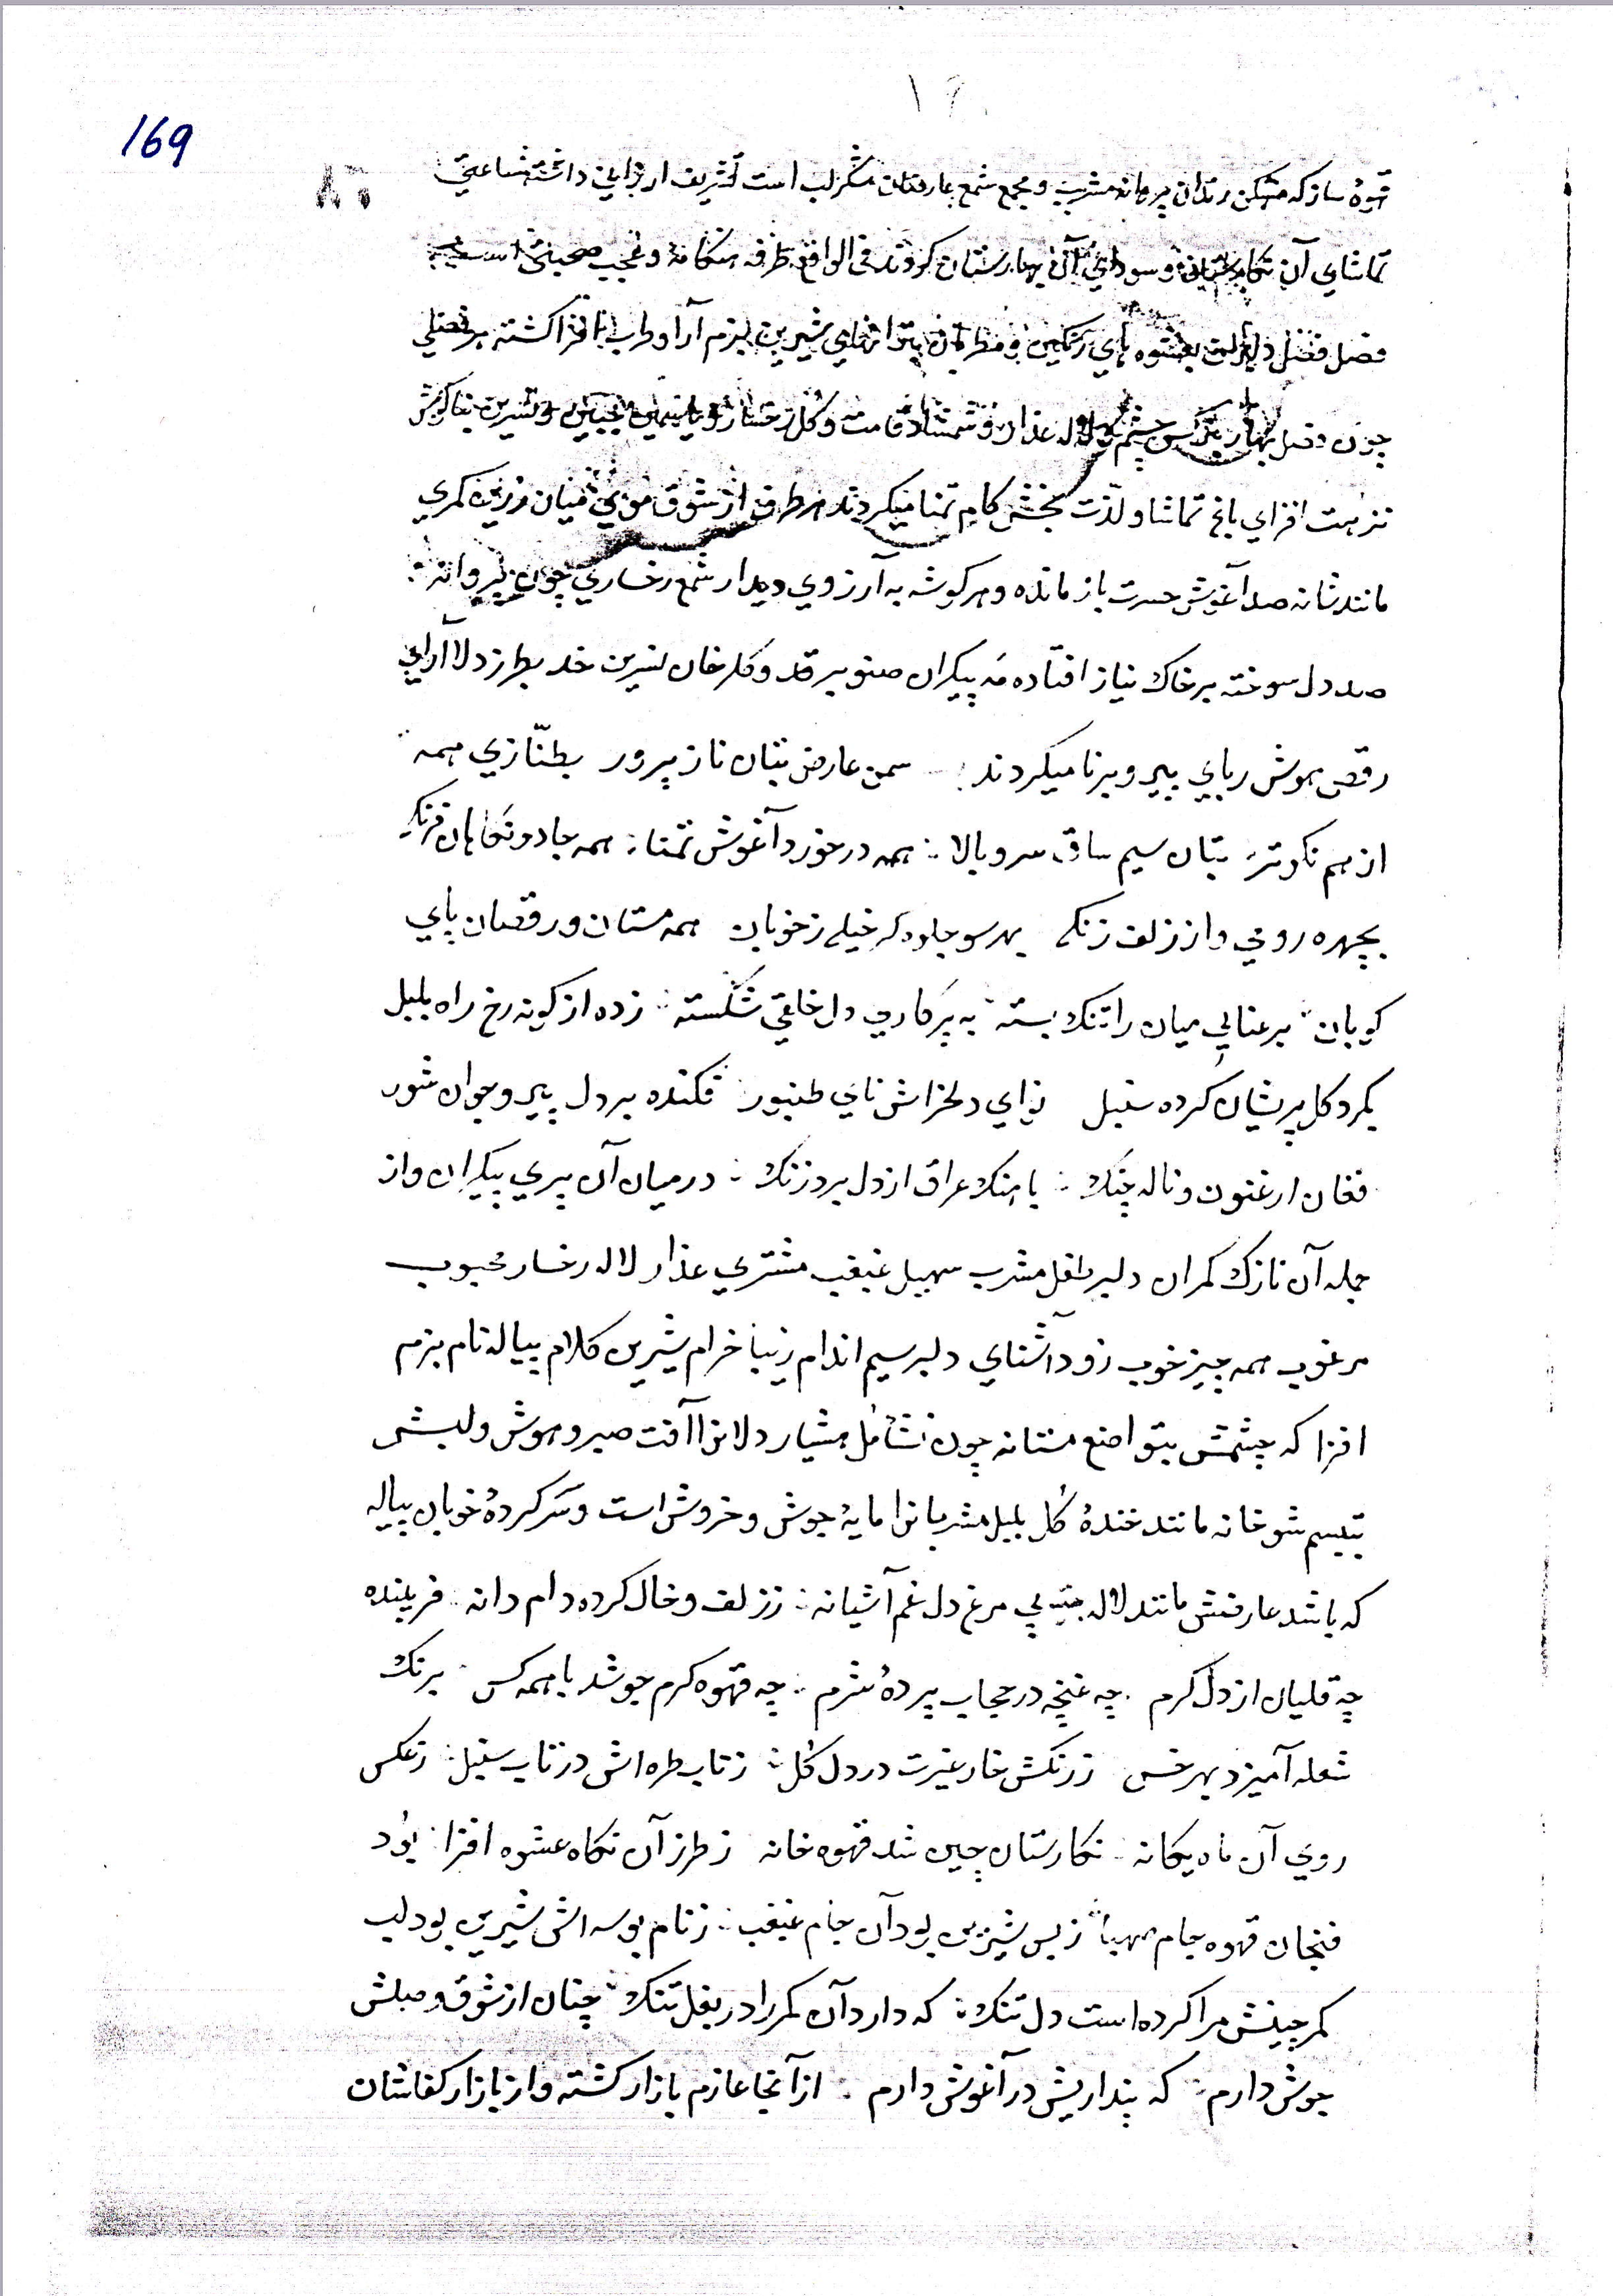 169
قهوه ساز که مسکن رندان پروانه مشرب و مجمع شمع عارضان شکر لب است تشریف ارزانی داشته ساعتی
تماشای آن و سودای آن بهارستان کردند فی الواقع طرفه هنکامهٔ و عجب صحبتی است
فصل فصل بعشوه های رنکین و مطربان بترانهای شیرین بزم آرا و طرب افزا کشته هر فصلی
چون فصل بهار نرکس چشم و لاله عذار و شمشاد قامت و کلرخسار و یاسمین جبین و نسرین بناکوش
نزهت افزای باغ تماشا و لذّت بخش کام تمنا میکردند هر طرف از شوق موی میان زرین کمری
مانند شانه صد آغوش حسرت باز مانده و هر کوشه به آرزوی دیدار شمع رخساری چون پروانه
صد دل سوخته بر خاک نیاز افتاده مه پیکران صنوبر قد و کلرخان نسرین خد بطرز دلاآرای
رقص هوش ربای پیر و برنا میکردند سمن عارض بتان ناز پرور بطنّازی همه
از هم نکوتر بتان سیم ساق سرو بالا همه در خورد آغوش تمنا همه جادو نکاهان فرنکی
بچهره رومی و از زلف زنکی بهر سو جلوه کر خیلی ز خوبان همه مستان و رقصان پای
کوبان برعنایی میان را تنک بسته به پرکاری دل خلقی شکسته زده از کونه رخ راه بلبل
بکرد کل پریشان کرده سنبل نوای دلخراش نای طنبور فکنده بر دل پیر و جوان شور
فغان ارغنون و ناله چنک باهنک عراق از دل برد زنک در میان آن پری پیکران و از
جمله آن نازک کمران دلبر طفل مشرب سهیل غبغب مشتری عذار لاله رخسار محبوب
مرغوب همه چیز خوب زود آشنای دلبر سیم اندام زیبا خرام شیرین کلام پیاله نام بزم
افزا که چشمش بتواضع مستانه چون نشأمل هشیار دلانرا آفت صبر و هوش و لبش
تبسم شوخانه مانند خندهٔ کل بلبل مشربانرا مایهٔ جوش و خروش است و سرکردهٔ خوبان پیاله
که باشد عارضش مانند لاله پی مرغ دل غم آشیانه ز زلف و خال کرده دام دانه فریبنده
چه قلیان از دل کرم چه غنچه در حجاب پردهٔ شرم چه قهوه کرم جوشد با همه کس برنک
شعله آمیزد بهر خس ز رنکش خار غیرت در دل کل ز تاب طره اش در تاب سنبل ز عکس
روی آن ماه یکانه نکارستان چین شد قهوه خانه ز طرز آن نکاه عشوه افزا بود
فنجان قهوه جام صهبا ز بس شیرین بود آن جام غبغب ز نام بوسه اش شیرین بود لب
کمر چینش مرا کرده است دل تنک که دارد آن کمر را در بغل تنک چنان از شوق وصلش
جوش دارم که پنداریش در آغوش دارم از آنجا عازم بازار کشته و از بازار کفاشان